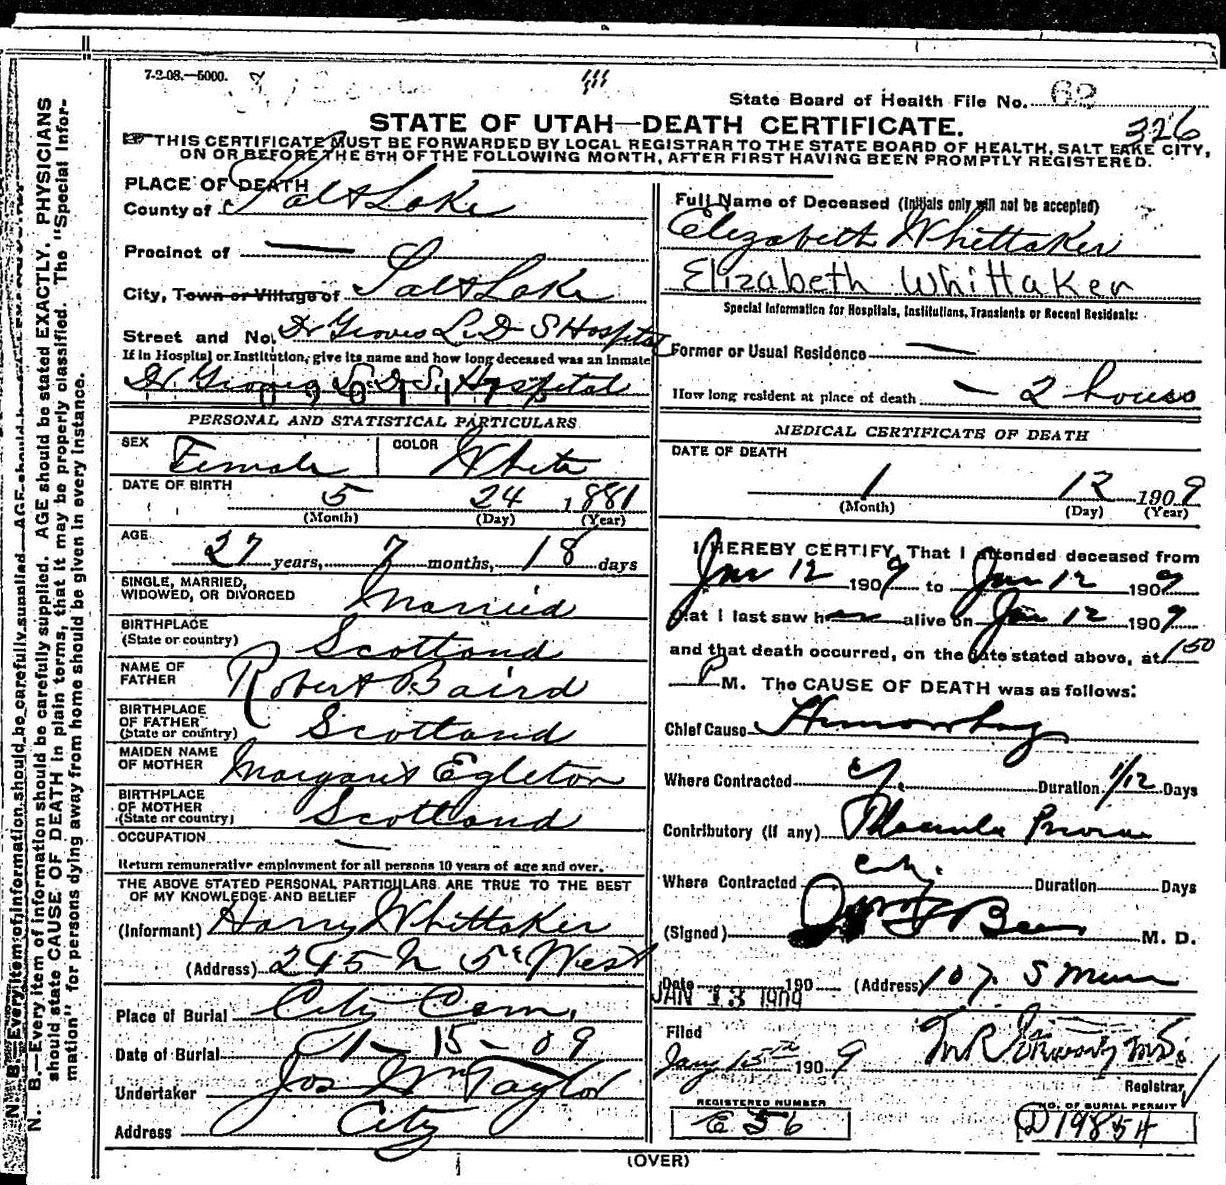 7-2-08.—5000.
State Board of Health File No. 62
STATE OF UTAH—DEATH CERTIFICATE.
326
THIS CERTIFICATE MUST BE FORWARDED BY LOCAL REGISTRAR TO THE STATE BOARD OF HEALTH, SALT LAKE CITY,
ON OR BEFORE THE 5TH OF THE FOLLOWING MONTH, AFTER FIRST HAVING BEEN PROMPTLY REGISTERED.
N. B.—Every item of information should be carefully supplied. AGE should be stated EXACTLY. PHYSICIANS
should state CAUSE OF DEATH in plain terms, that it may be properly classified. The "Special Infor-
mation" for persons dying away from home should be given in every instance.
PLACE OF DEATH
County of Salt Lake
Precinct of —
City, Town or Village of Salt Lake
Street and No. Dr Groves L. D S Hospital
If in Hospital or Institution, give its name and how long deceased was an inmate
Dr Groves L. D. S. Hospital
PERSONAL AND STATISTICAL PARTICULARS
SEX Female COLOR White
DATE OF BIRTH 5 24 1881
(Month) (Day) (Year)
AGE 27 years, 7 months, 18 days
SINGLE, MARRIED,
WIDOWED, OR DIVORCED Married
BIRTHPLACE
(State or country) Scotland
NAME OF
FATHER Robert Baird
BIRTHPLACE
OF FATHER
(State or country) Scotland
MAIDEN NAME
OF MOTHER Margaret Egleton
BIRTHPLACE
OF MOTHER
(State or country) Scotland
OCCUPATION —
Return remunerative employment for all persons 10 years of age and over.
THE ABOVE STATED PERSONAL PARTICULARS ARE TRUE TO THE BEST
OF MY KNOWLEDGE AND BELIEF
(Informant) Harry Whittaker
(Address) 245 N 5th West
Place of Burial City Cem.
Date of Burial 1-15-09
Undertaker Jos Wm Taylor
Address City
Full Name of Deceased (Initials only will not be accepted)
Elizabeth Whittaker
Elizabeth Whittaker
Special Information for Hospitals, Institutions, Transients or Recent Residents:
Former or Usual Residence —
How long resident at place of death — 2 hours
MEDICAL CERTIFICATE OF DEATH
DATE OF DEATH
1 12 1909
(Month) (Day) (Year)
I HEREBY CERTIFY, That I attended deceased from
Jan 12 1909 to Jan 12 1909
that I last saw her alive on Jan 12 1909
and that death occurred, on the date stated above, at 1 50
P M. The CAUSE OF DEATH was as follows:
Chief Cause Hemorrhag
Where Contracted Duration 1/12 Days
Contributory (if any) Placenta
Where Contracted City. Duration Days
(Signed) M. D.
Date 190 (Address) 107 S Main
JAN 13 1909
Filed
Jany 15th 1909
Registrar
REGISTERED NUMBER
E 56
NO. OF BURIAL PERMIT
D 19854
(OVER)